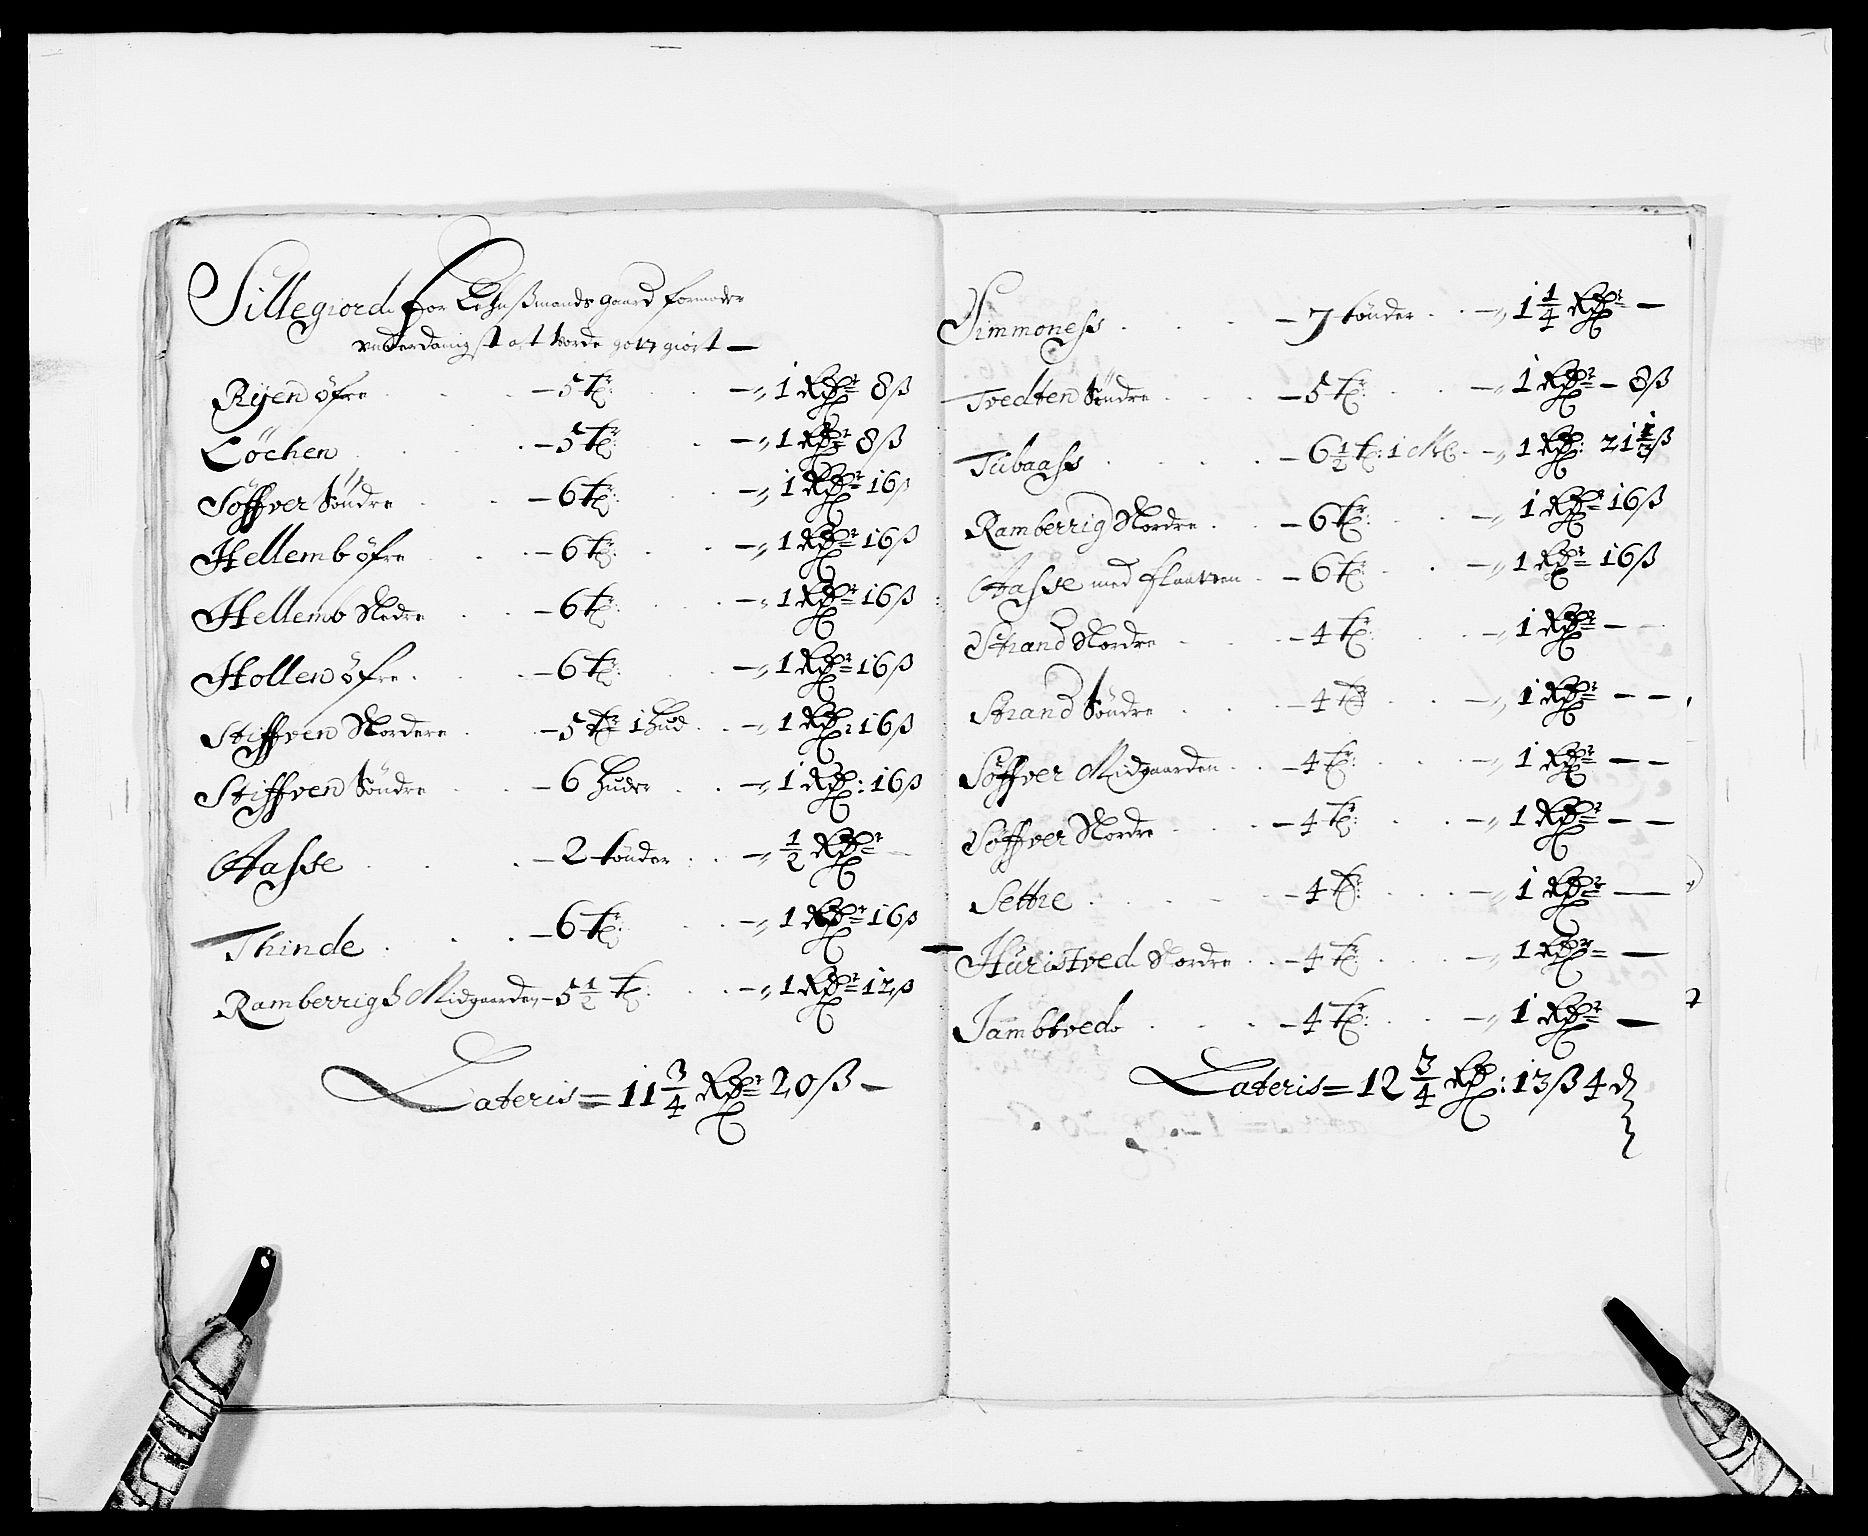 Sillegiord for Lehnßmands gaard formoder
underdanigst at worde got giort —
Rijen øfre . . . — 5 tr: . . —„ 1 Rdr 8 ß
Löchen . . . — 5 tr: . —„ 1 Rdr 8 ß
Söffver Söndre . . — 6 tr: . . —„ 1 Rdr 16 ß
Hellemb øfre . . . — 6 tr: . . —„ 1 Rdr 16 ß
Hellemb Nedre . . — 6 tr: . . . —„ 1 Rdr 16 ß
Hollen øfre . . . — 6 tr: . . —„ 1 Rdr 16 ß
Stiffven Nordere . . — 5 tr 1 Hud . . —„ 1 Rdr: 16 ß
Stiffven Söndre . . — 6 Huder . . —„ 1 Rdr: 16 ß
Aasse . . . — 2 tönder . . —„ ½ Rdr —
Thinde . . . — 6 tr: . . —„ 1 Rdr 16 ß
Ramberrig Midgaarden — 5 ½ tr: . . —„ 1 Rdr 12 ß
Lateris = 11 ¾ Rdr 20 ß —
Simmoness . . . — 7 tönder . . —„ 1 ¼ Rdr —
Tvedten Söndre . . . — 5 tr: . . —„ 1 Rdr — 8 ß
Tübaass . . . . — 6 ½ tr: 1 Mr . —„ 1 Rdr: 21 ⅓ ß
Ramberrig Nordre . . — 6 tr: . . —„ 1 Rdr 16 ß
Aasse med flaatten . — 6 tr: . . —„ 1 Rdr 16 ß
Strand Nordre . . . — 4 tr: . . —„ 1 Rdr — —
Strand Söndre . . . — 4 tr . . —„ 1 Rdr — —
Söffver Midgaarden . . — 4 tr: . . —„ 1 Rdr — —
Söffver Nordre . . . — 4 tr: . . —„ 1 Rdr — —
Settre . . . . — 4 tr: . . —„ 1 Rdr —
Hüristved Nordre . . — 4 tr: . . —„ 1 Rdr —
Jambtved . . . — 4 tr: . . —„ 1 Rdr —
Lateris = 12 ¾ Rdr: 13 ß 4 d